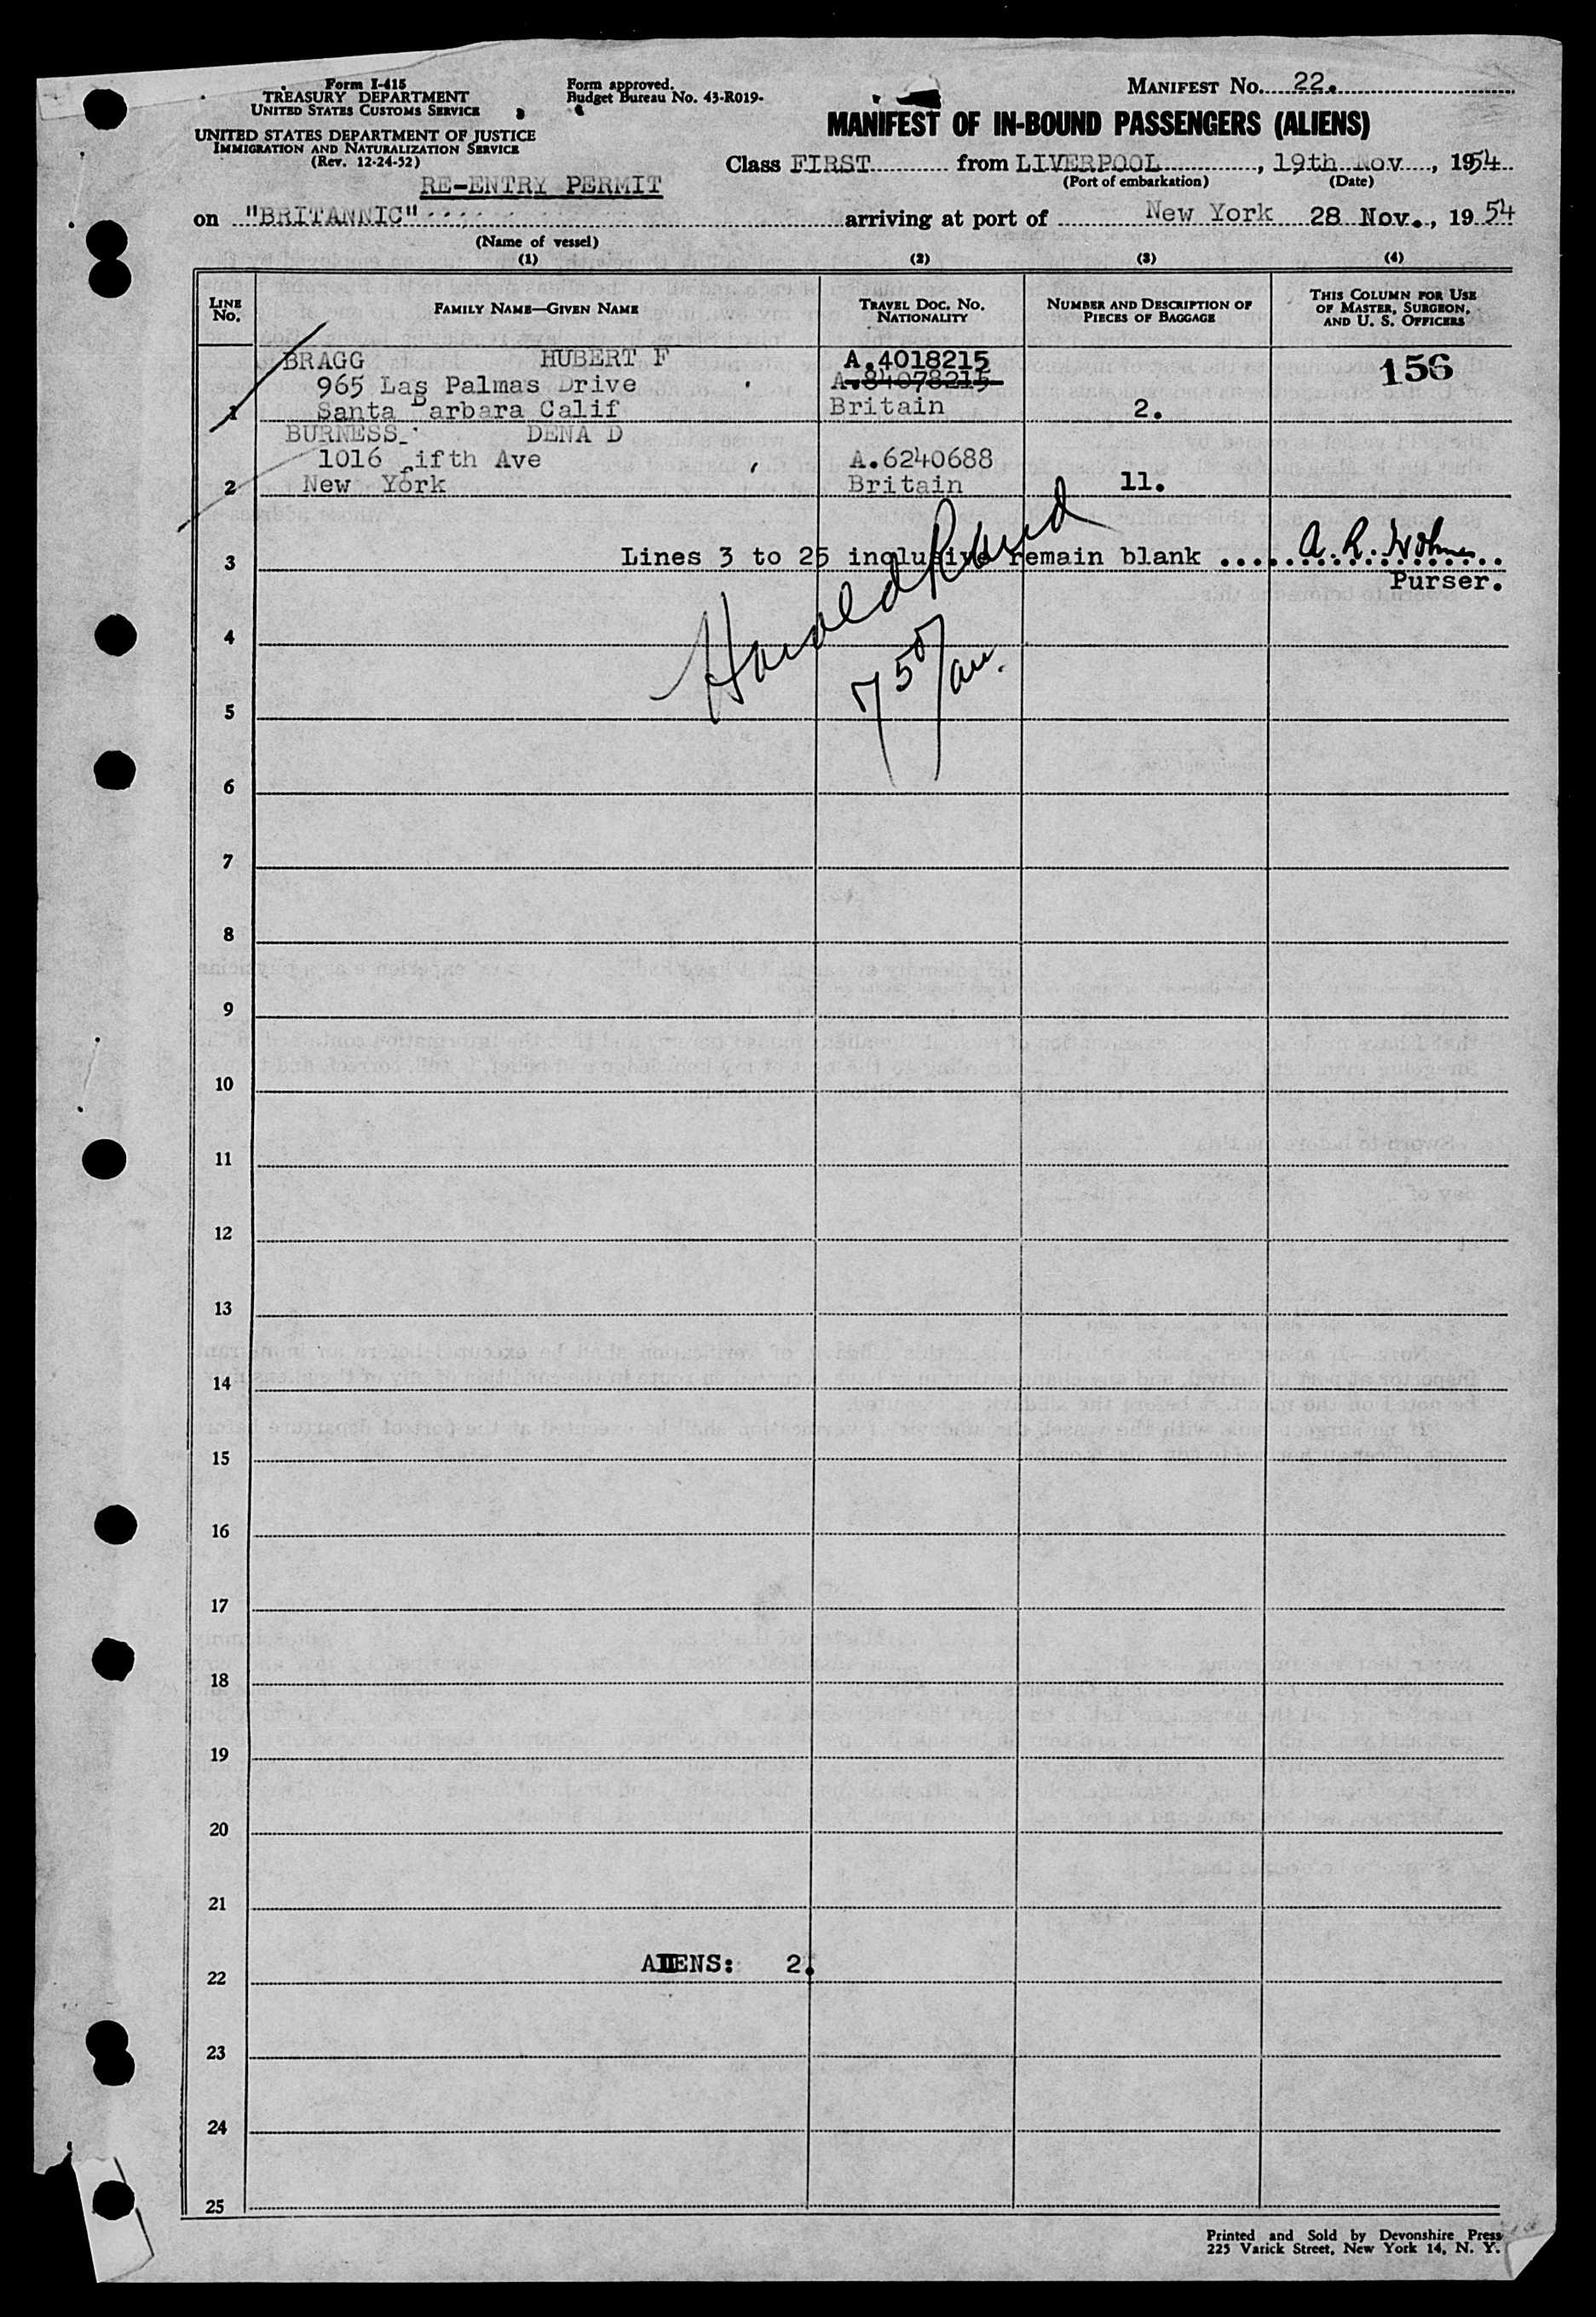 Form I-415
TREASURY DEPARTMENT
UNITED STATES CUSTOMS SERVICE
UNITED STATES DEPARTMENT OF JUSTICE
IMMIGRATION AND NATURALIZATION SERVICE
(Rev. 12-24-52)
Form approved.
Budget Bureau No. 43-R019-
MANIFEST No. 22.
MANIFEST OF IN-BOUND PASSENGERS (ALIENS)
Class FIRST from LIVERPOOL, 19th Nov, 1954
(Port of embarkation) (Date)
RE-ENTRY PERMIT
on "BRITANNIC" arriving at port of New York 28 Nov., 1954
(Name of vessel)
(1) (2) (3) (4)
LINE No. FAMILY NAME—GIVEN NAME TRAVEL DOC. NO. NATIONALITY NUMBER AND DESCRIPTION OF PIECES OF BAGGAGE THIS COLUMN FOR USE OF MASTER, SURGEON, AND U. S. OFFICERS
BRAGG HUBERT F A.4018215 156
965 Las Palmas Drive A.84078215
1 Santa Barbara Calif Britain 2.
BURNESS DENA D
1016 ifth Ave A.6240688
2 New York Britain 11.
3 Lines 3 to 25 inclusive remain blank ....
Purser.
Harold Rand
4
750/am.
5
6
7
8
9
10
11
12
13
14
15
16
17
18
19
20
21
22 ALIENS: 2.
23
24
25
Printed and Sold by Devonshire Press
225 Varick Street, New York 14, N. Y.